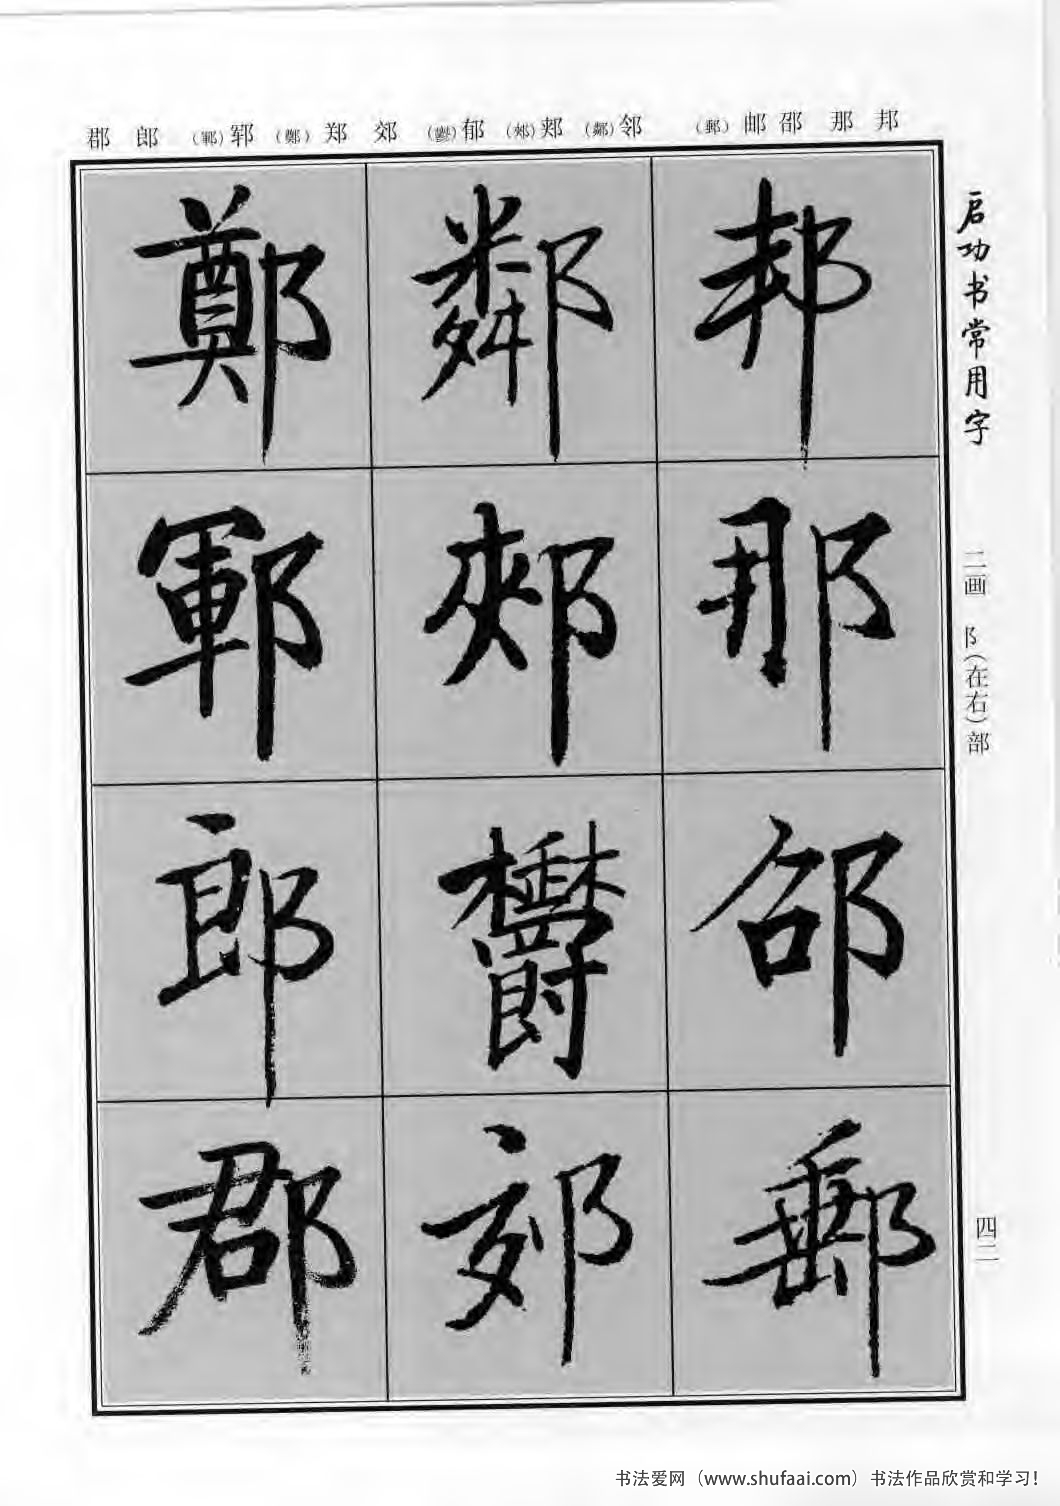 邦 那 邵 邮（郵） 邻（鄰） 郏（郟） 郁（鬱） 郊 郑（鄭） 郓（鄆） 郎 郡
启功书常用字
二画 阝（在右）部
四二
邦
那
邵
郵
鄰
郟
鬱
郊
鄭
鄆
郎
郡
书法爱网（www.shufaai.com）书法作品欣赏和学习！